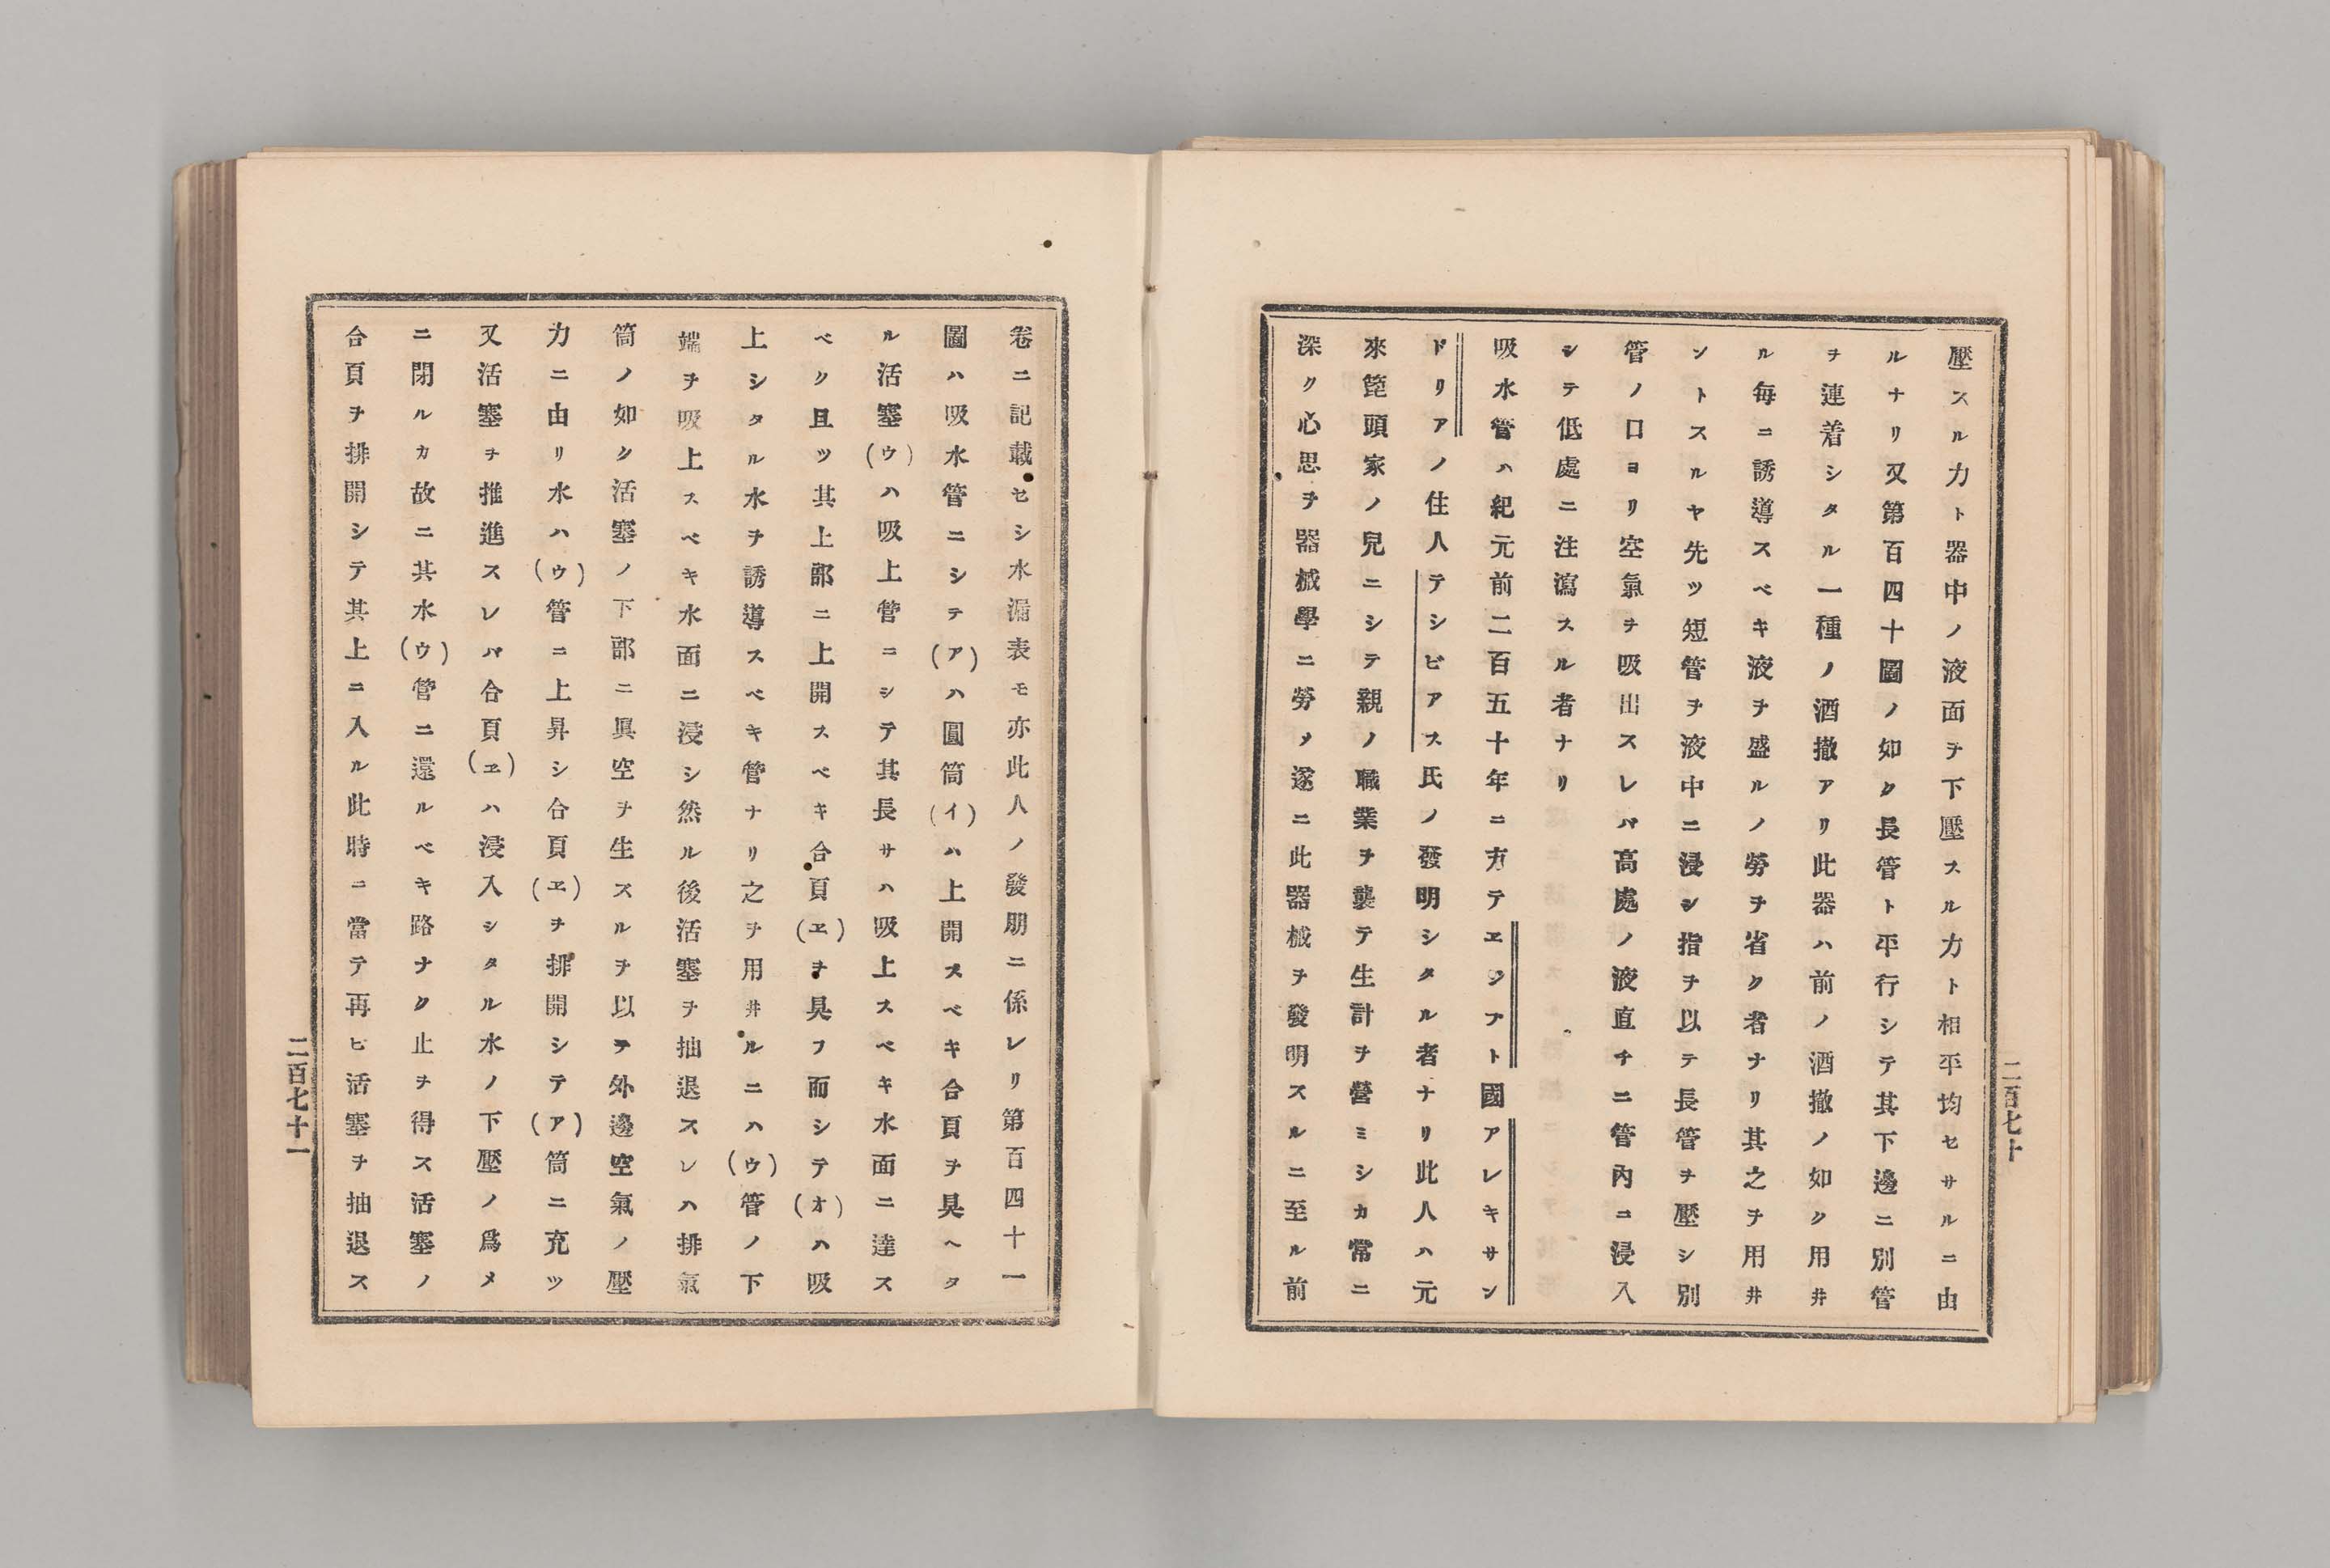 二百七十
壓スル力ト器中ノ液面ヲ下壓スル力ト相平均セサルニ由
ルナリ又第百四十圖ノ如ク長管ト平行シテ其下邊ニ別管
ヲ連着シタル一種ノ酒撤アリ此器ハ前ノ酒撤ノ如ク用井
ル毎ニ誘導スベキ液ヲ盛ルノ勞ヲ省ク者ナリ其之ヲ用井
ントスルヤ先ツ短管ヲ液中ニ浸シ指ヲ以テ長管ヲ壓シ別
管ノ口ヨリ空氣ヲ吸出スレバ高處ノ液直チニ管內ニ浸入
シテ低處ニ注瀉スル者ナリ
吸水管ハ紀元前二百五十年ニ方テエジプト國アレキサン
ドリアノ住人テシビアス氏ノ發明シタル者ナリ此人ハ元
來篦頭家ノ兒ニシテ親ノ職業ヲ襲テ生計ヲ營ミシカ常ニ
深ク心思ヲ器械學ニ勞メ遂ニ此器械ヲ發明スルニ至ル前
卷ニ記載セシ水漏表モ亦此人ノ發明ニ係レリ第百四十一
圖ハ吸水管ニシテ(ア)ハ圓筒(イ)ハ上開スベキ合頁ヲ具ヘタ
ル活塞(ウ)ハ吸上管ニシテ其長サハ吸上スベキ水面ニ達ス
ベク且ツ其上部ニ上開スベキ合頁(ヱ)ヲ具フ而シテ(オ)ハ吸
上シタル水ヲ誘導スベキ管ナリ之ヲ用井ルニハ(ウ)管ノ下
端ヲ吸上スベキ水面ニ浸シ然ル後活塞ヲ抽退スレハ排氣
筒ノ如ク活塞ノ下部ニ眞空ヲ生スルヲ以テ外邊空氣ノ壓
力ニ由リ水ハ(ウ)管ニ上昇シ合頁(ヱ)ヲ排開シテ(ア)筒ニ充ツ
又活塞ヲ推進スレバ合頁(ヱ)ハ浸入シタル水ノ下壓ノ爲メ
ニ閉ルカ故ニ其水(ウ)管ニ還ルベキ路ナク止ヲ得ス活塞ノ
合頁ヲ排開シテ其上ニ入ル此時ニ當テ再ビ活塞ヲ抽退ス
二百七十一